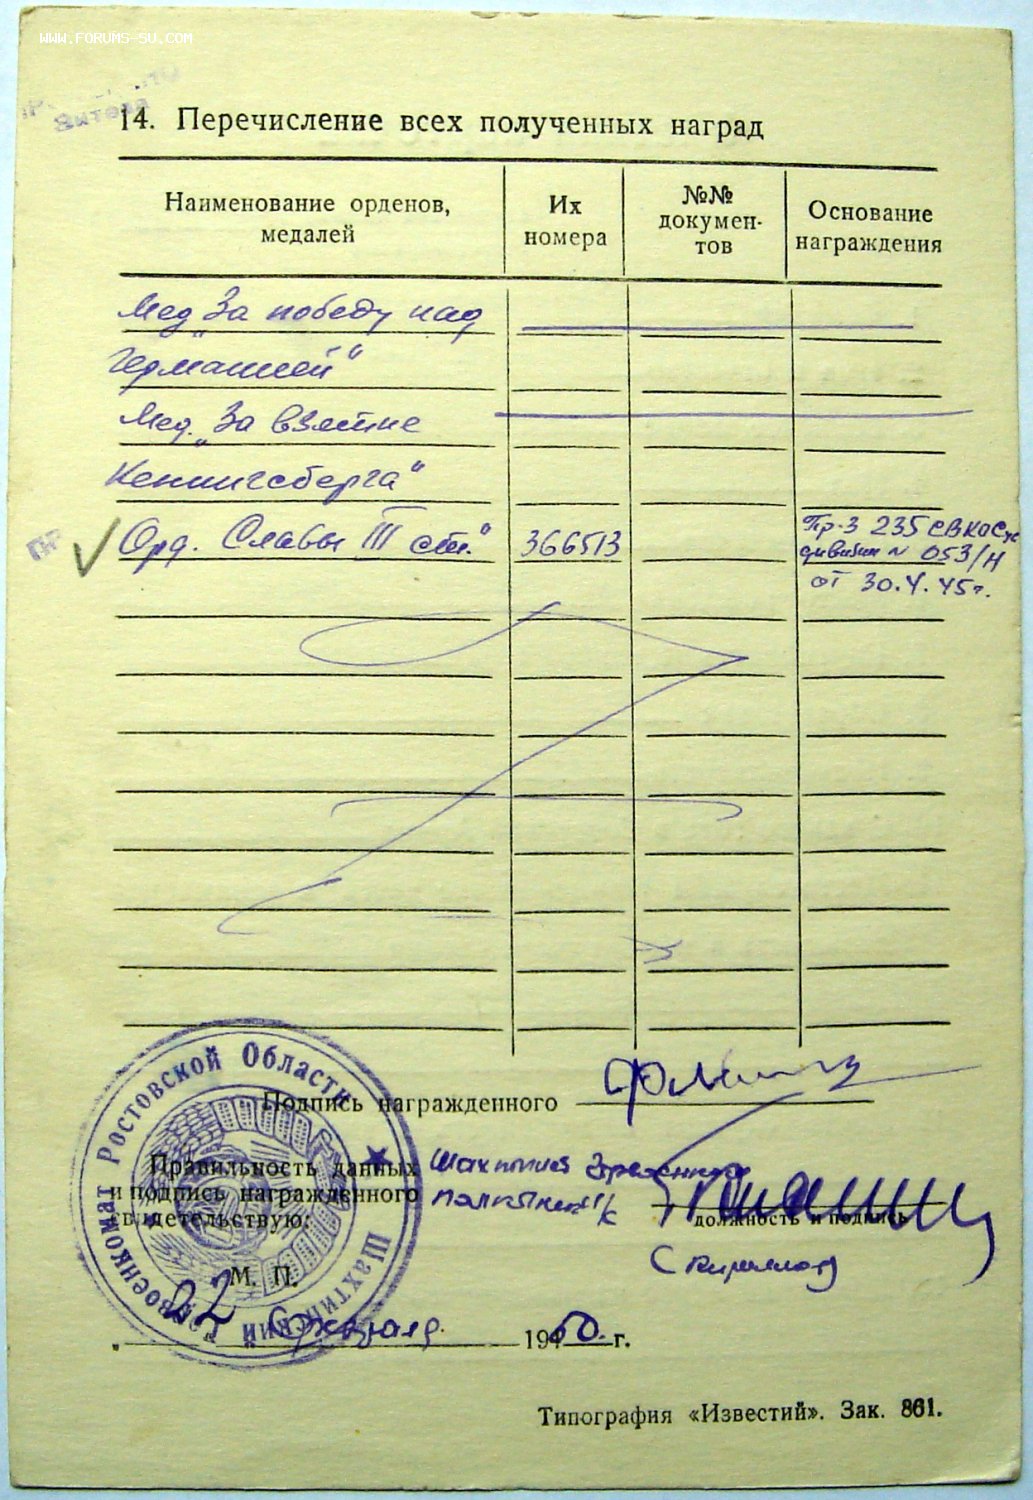 WWW.FORUMS-SU.COM
14. Перечисление всех полученных наград
Наименование орденов, медалей
Их номера
№№ докумен-тов
Основание награждения
Мед „За победу над
Германией“
Мед. „За взятие
Кенингсберга“
Орд. Славы III ст.“ 366513
Пр-з 235
дивизии № 053/н
от 30.4.45г.
Подпись награжденного
Правильность данных
и подпись награжденного
свидетельствую:
должность и подпись
М. П.
22 февраля 1950 г.
Ростовской Области
Шахтинский Горвоенкомат
Типография «Известий». Зак. 861.